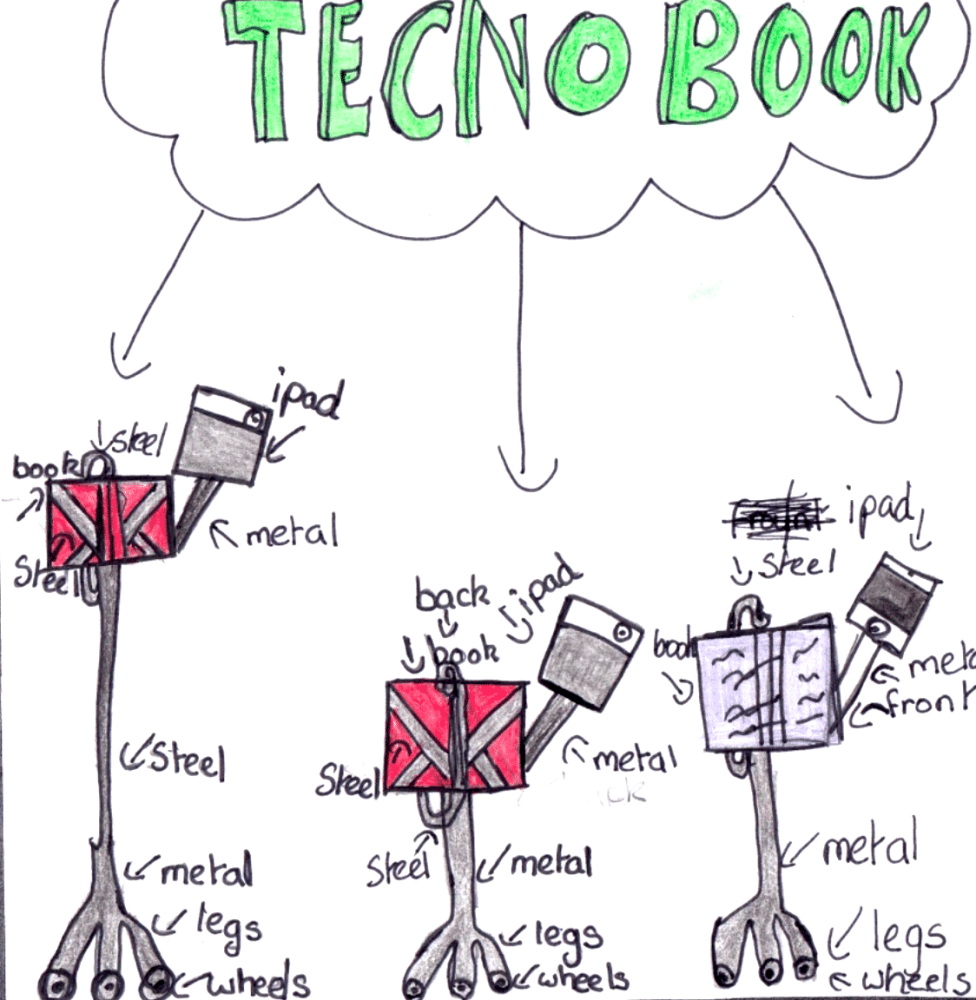 TECNO BOOK
ipad
steel
book
metal
Steel
Steel
metal
legs
wheels
back
ipad
book
Steel
metal
Steel
metal
legs
wheels
ipad
Steel
book
front
metal
legs
wheels